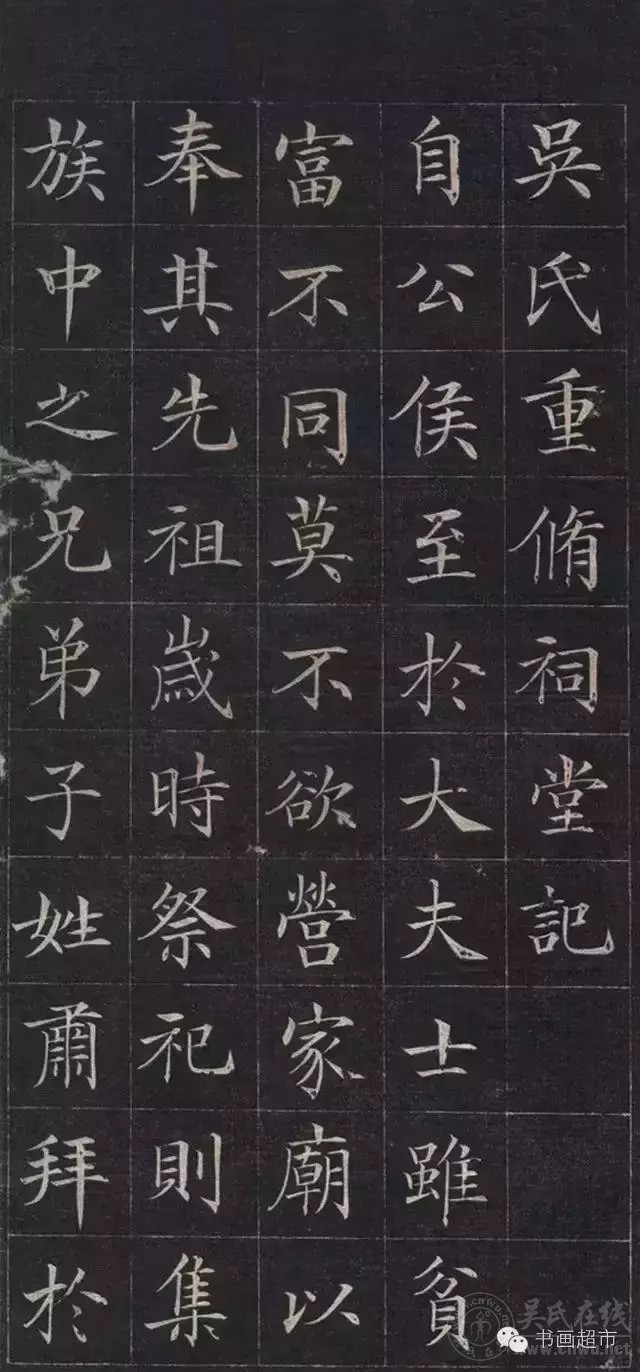 吳氏重脩祠堂記
自公侯至於大夫士雖貧
富不同莫不欲營家廟以
奉其先祖歲時祭祀則集
族中之兄弟子姓肅拜於
吴氏在线
www.cnwu.net
书画超市